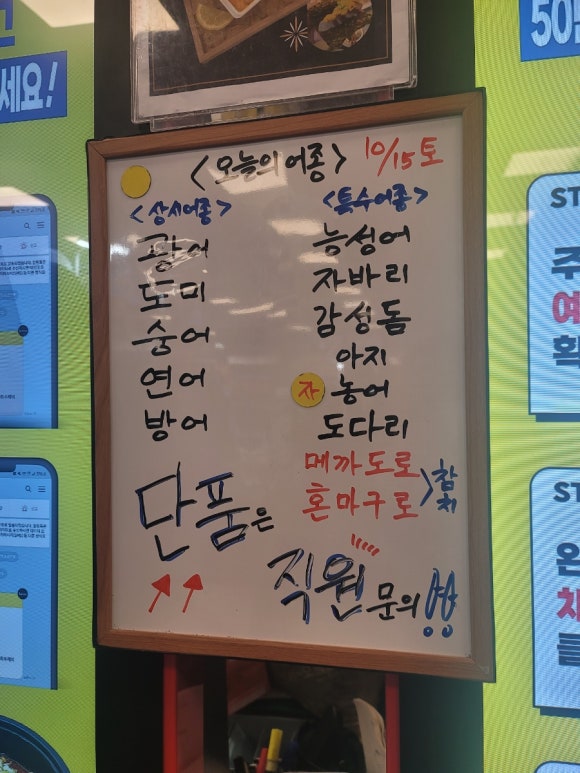 <오늘의어종> 10/15토
<상시어종>
광어
도미
숭어
연어
방어
<특수어종>
능성어
자바리
감성돔
아지
자 농어
도다리
메까도로
혼마구로
> 참치
단품은
직원문의
세요!
50
ST
주
예
확
ST
온
채
클